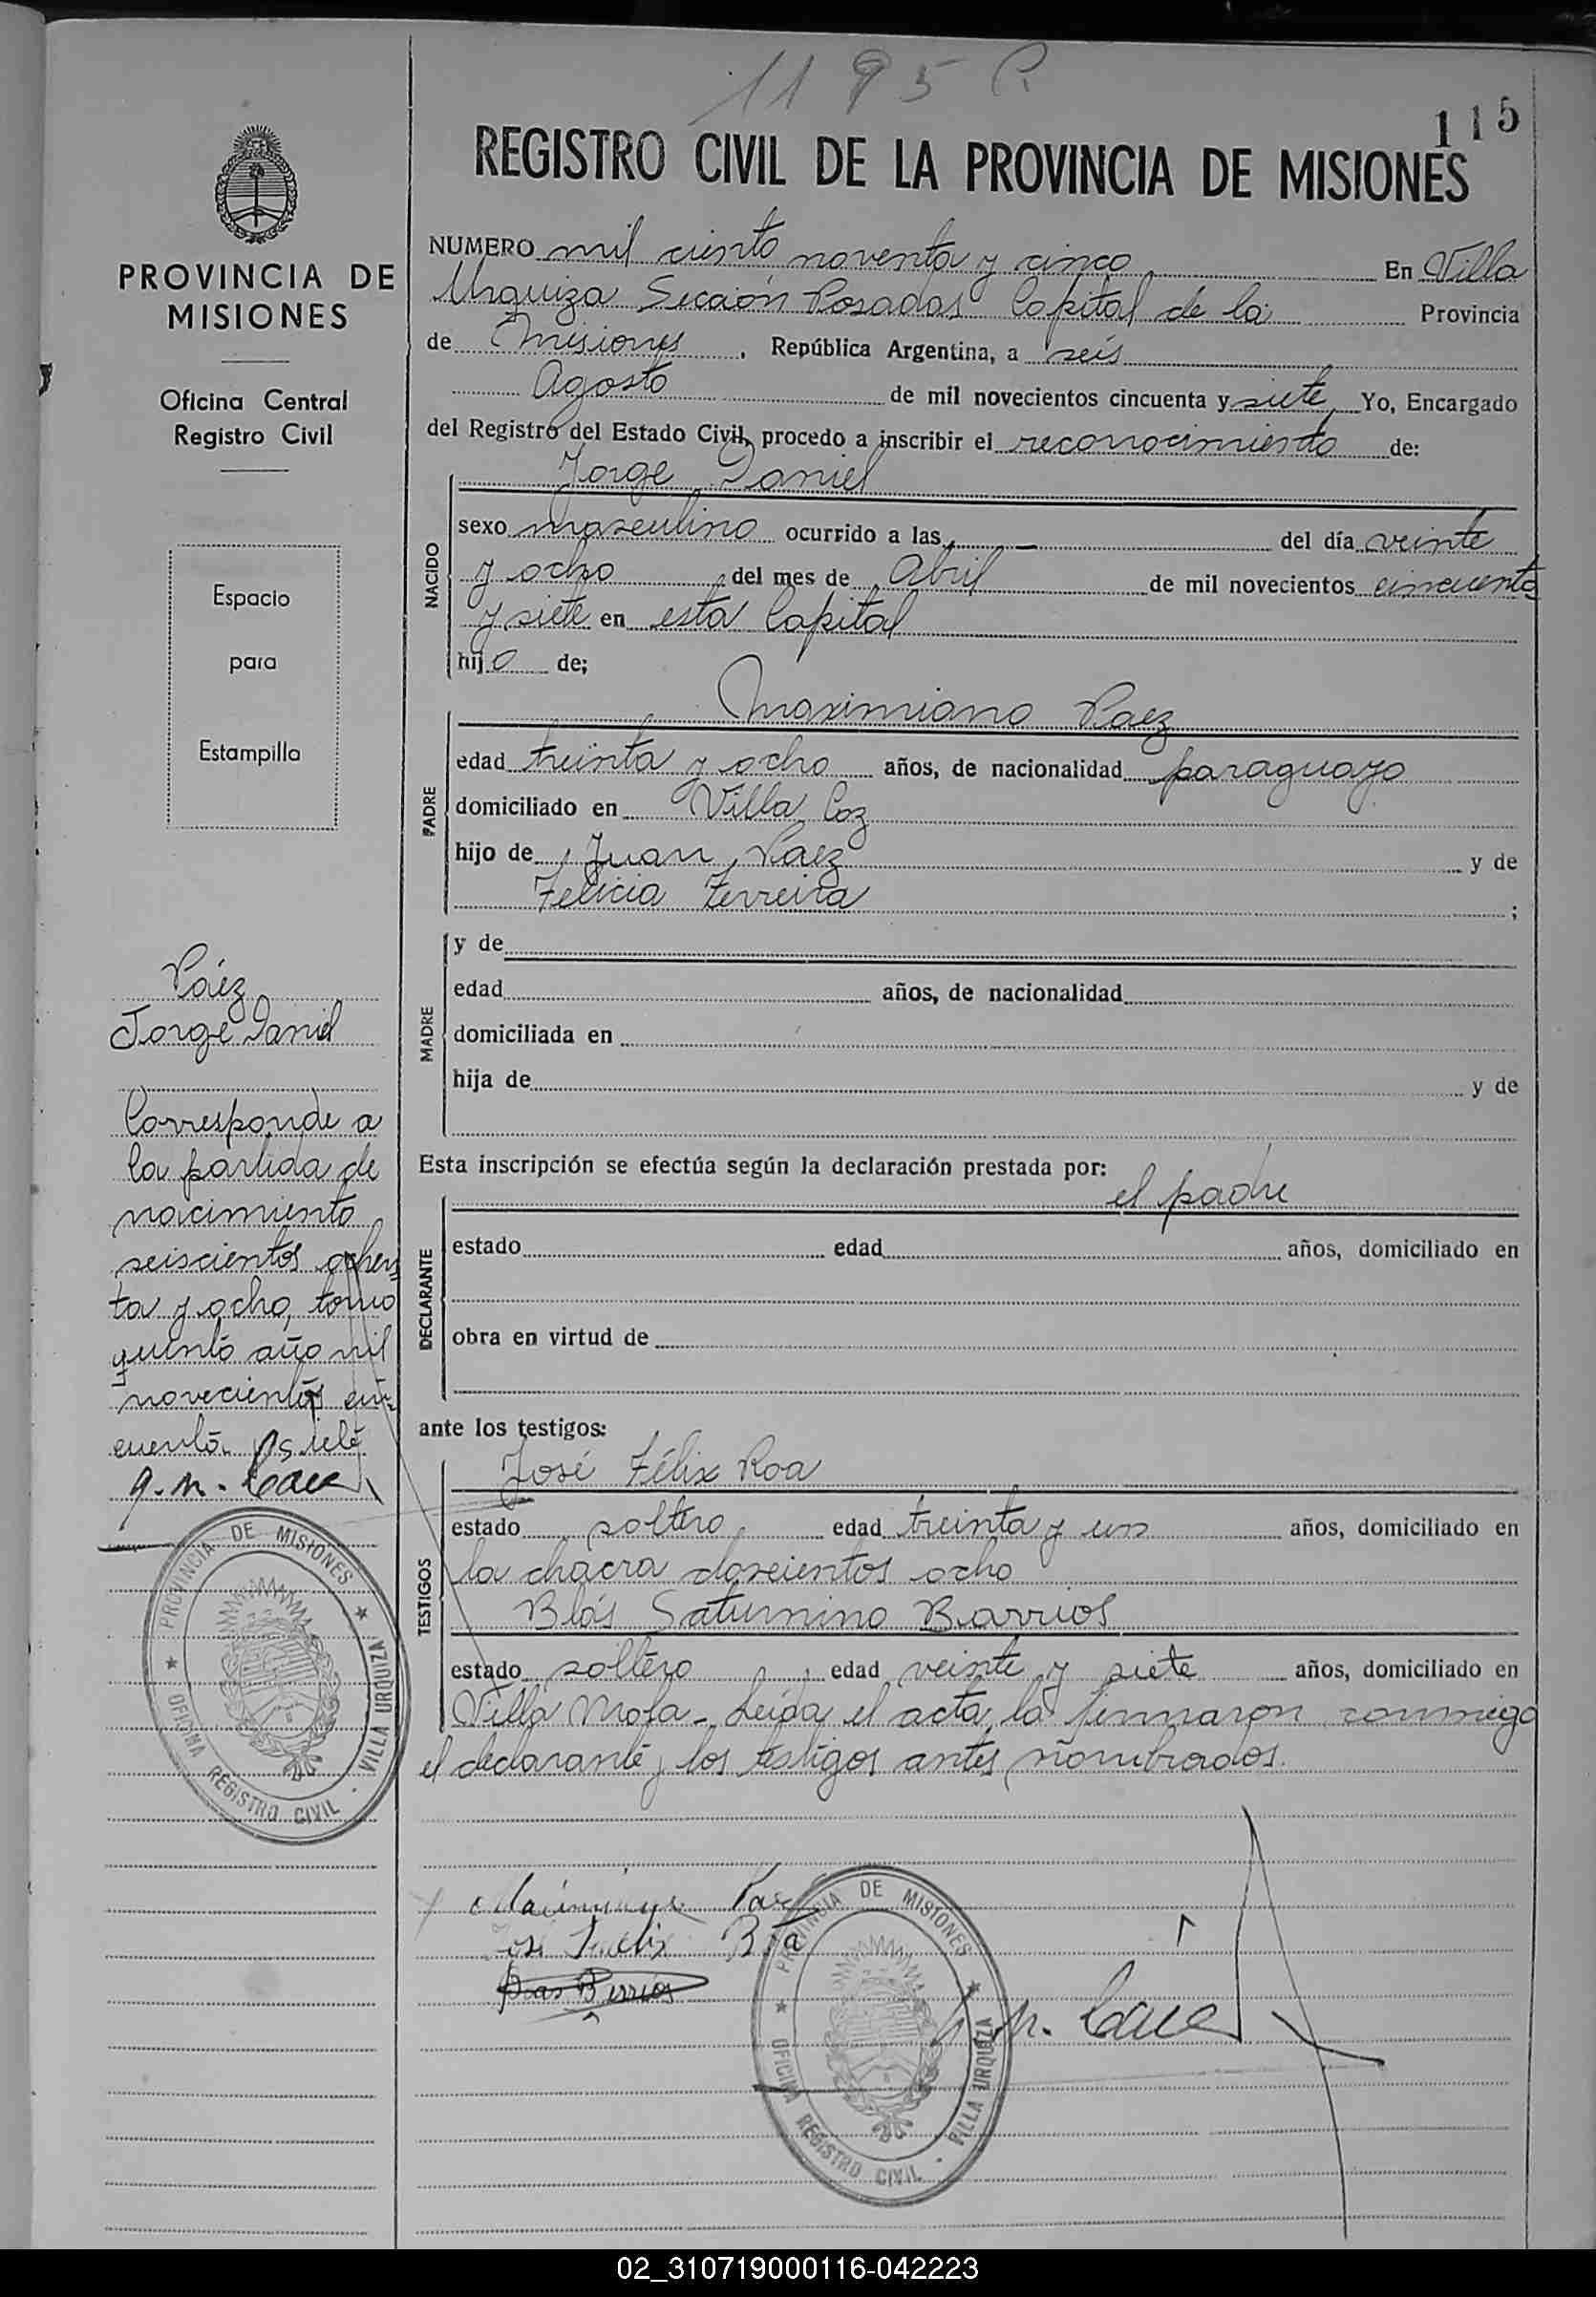 1195 R
115
REGISTRO CIVIL DE LA PROVINCIA DE MISIONES
PROVINCIA DE
MISIONES
Oficina Central
Registro Civil
Espacio
para
Estampilla
Páez
Jorge Daniel
Corresponde a
la partida de
nacimiento
seiscientos ochen
ta y ocho, tomo
quinto año mil
novecientos cin
cuenta y siete
PROVINCIA DE MISIONES
OFICINA REGISTRO CIVIL - VILLA URQUIZA
NUMERO mil ciento noventa y cinco En Villa
Urquiza Sección Posadas Capital de la Provincia
de Misiones, República Argentina, a seis
Agosto de mil novecientos cincuenta y siete Yo, Encargado
del Registro del Estado Civil, procedo a inscribir el reconocimiento de:
Jorge Daniel
NACIDO
sexo masculino ocurrido a las — del día veinte
y ocho del mes de Abril de mil novecientos cincuenta
y siete en esta Capital
hijo de;
Maximiano Paez
PADRE
edad treinta y ocho años, de nacionalidad paraguayo
domiciliado en Villa Coz
hijo de Juan Paez y de
Felicia Ferreira ;
MADRE
y de
edad años, de nacionalidad
domiciliada en
hija de y de
Esta inscripción se efectúa según la declaración prestada por:
el padre
DECLARANTE
estado edad años, domiciliado en
obra en virtud de
ante los testigos:
José Félix Roa
TESTIGOS
estado soltero edad treinta y un años, domiciliado en
la chacra doscientos ocho
Blás Saturnino Barrios
estado soltero, edad veinte y siete años, domiciliado en
Villa Mota - Leída el acta, la firmaron conmigo
el declarante y los testigos antes nombrados.
PROVINCIA DE MISIONES
OFICINA REGISTRO CIVIL - VILLA URQUIZA
02_310719000116-042223